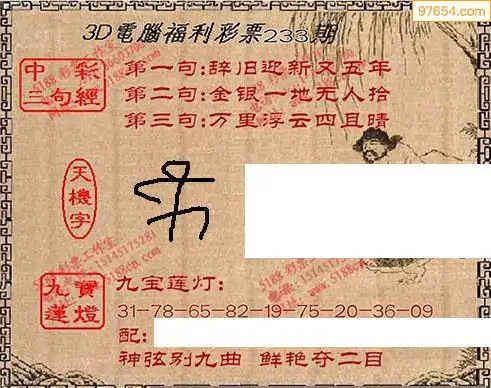 97654.com
3D電腦福利彩票233期
中彩三句經
第一句:辞旧迎新又五年
第二句:金银一地无人拾
第三句:万里浮云四且晴
天機字
九寶蓮燈
九宝莲灯:
31-78-65-82-19-75-20-36-09
配:
神弦别九曲 鲜艳夺二目